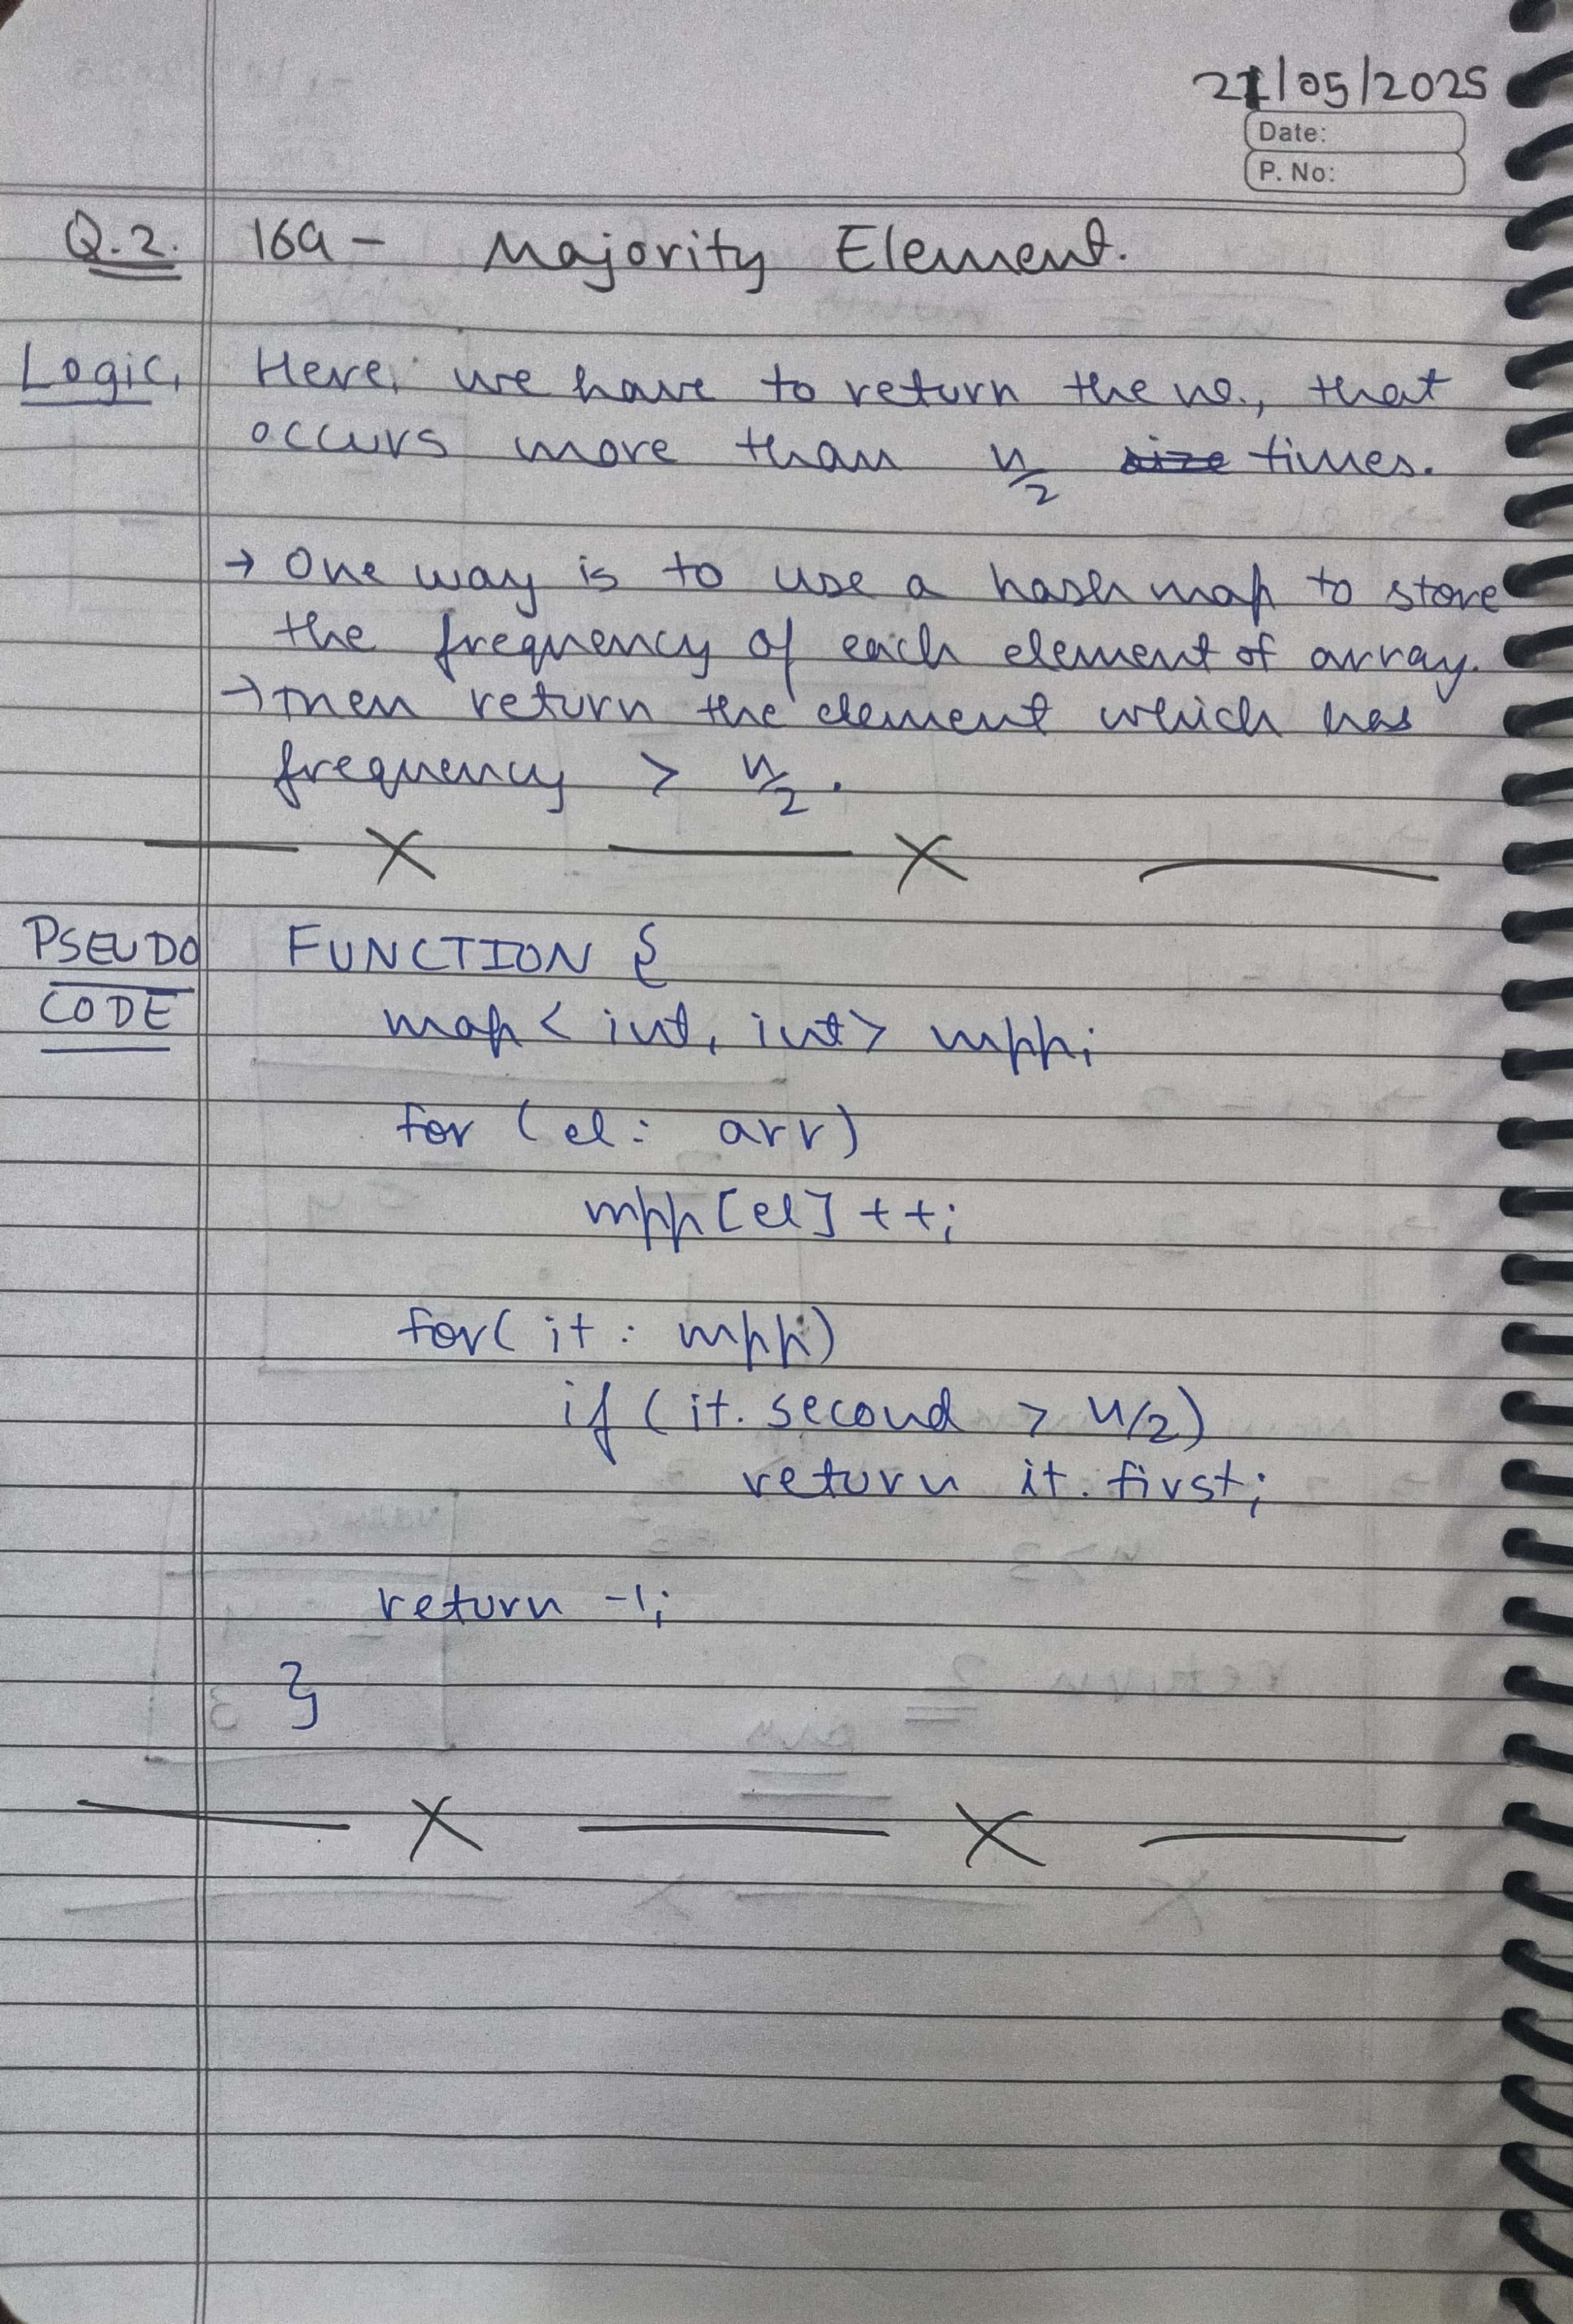 21/05/2025
Date:
P. No:
Q.2. 169 - Majority Element.
Logic, Here, we have to return the no., that
occurs more than n/2 size times.
→ One way is to use a hash map to store
the frequency of each element of array.
→ Then return the element which has
frequency > n/2.
— X — X —
PSEUDO FUNCTION {
CODE map < int, int> mpp;
for (el: arr)
mpp[el]++;
for( it : mpp)
if (it. second > n/2)
return it. first;
return -1;
}
— X — X —